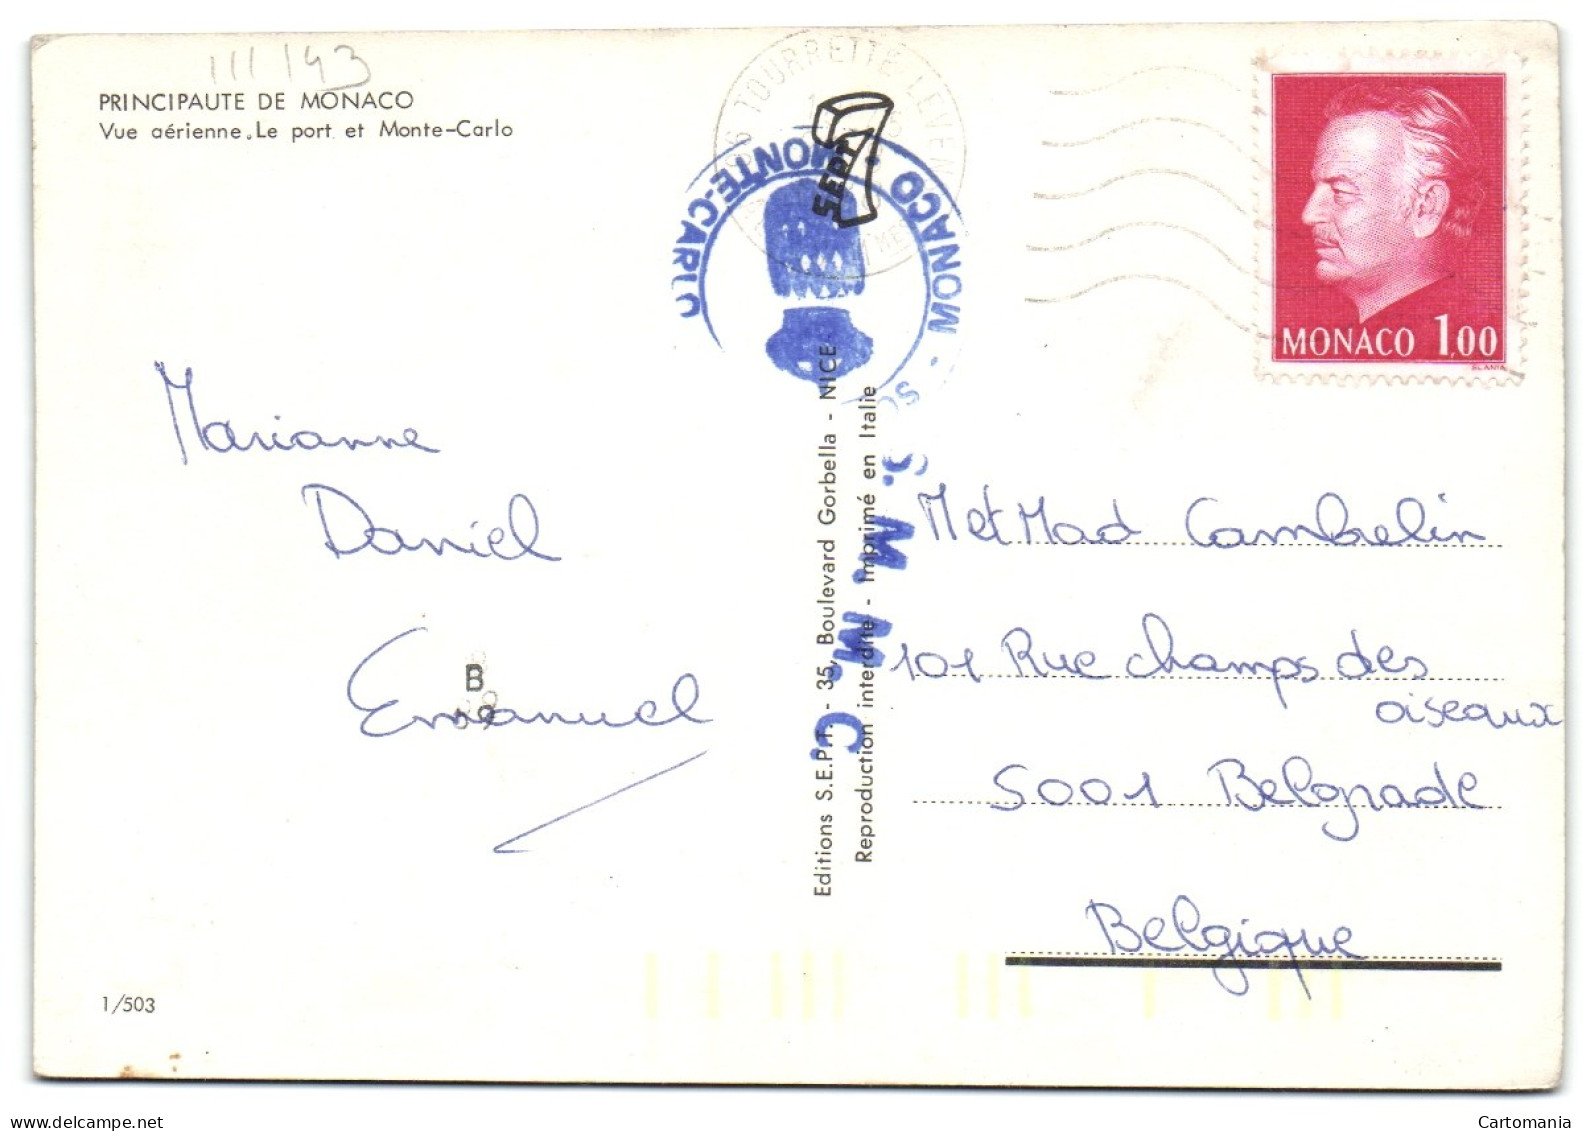 III 143
PRINCIPAUTE DE MONACO
Vue aérienne. Le port et Monte-Carlo
TOURRETTE-LEVENS
MONTE-CARLO
MONACO
SEPT
MONACO 1,00
Marianne
Daniel
Emanuel
B
Editions S.E.P.T. - 35, Boulevard Gorbella - NICE
Reproduction interdite - Imprimé en Italie
S. M. M. C
M et Mad Cambrelin
101 Rue champs des
oiseaux
5001 Belgrade
Belgique
1/503
Cartomania